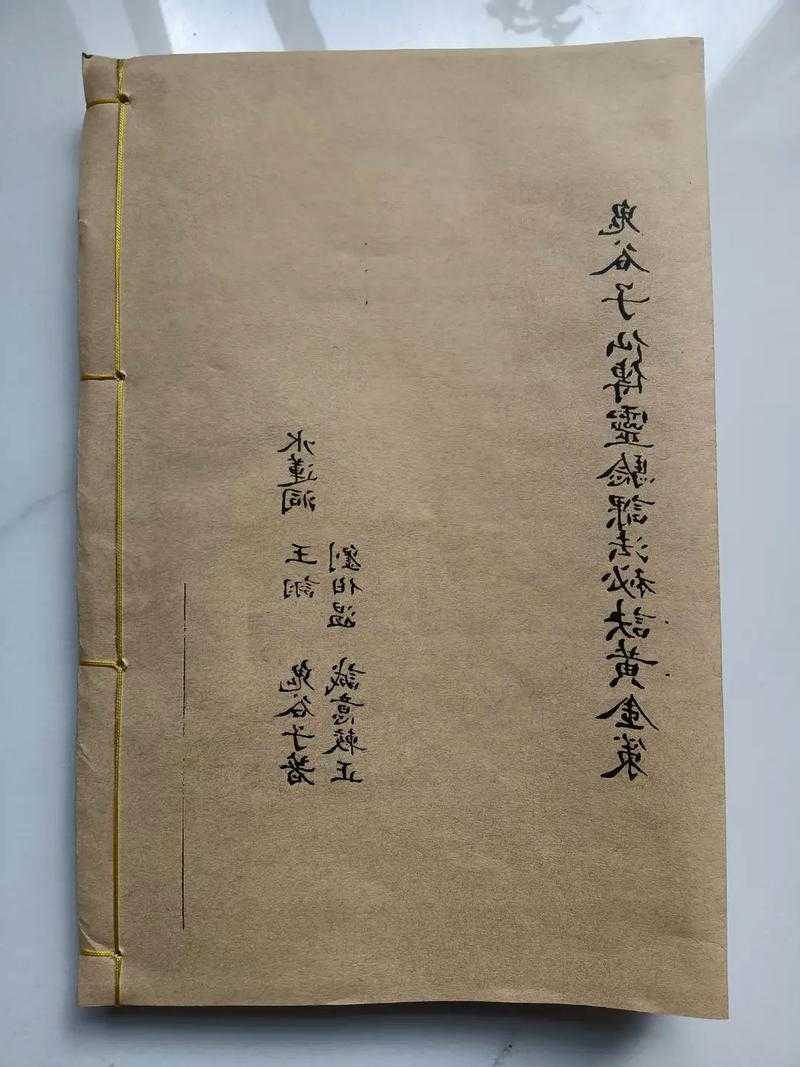 鬼谷子仙傳靈驗課法秘訣黃金策
水蓮洞　王詡　鬼谷子著
劉伯溫　誠意較正